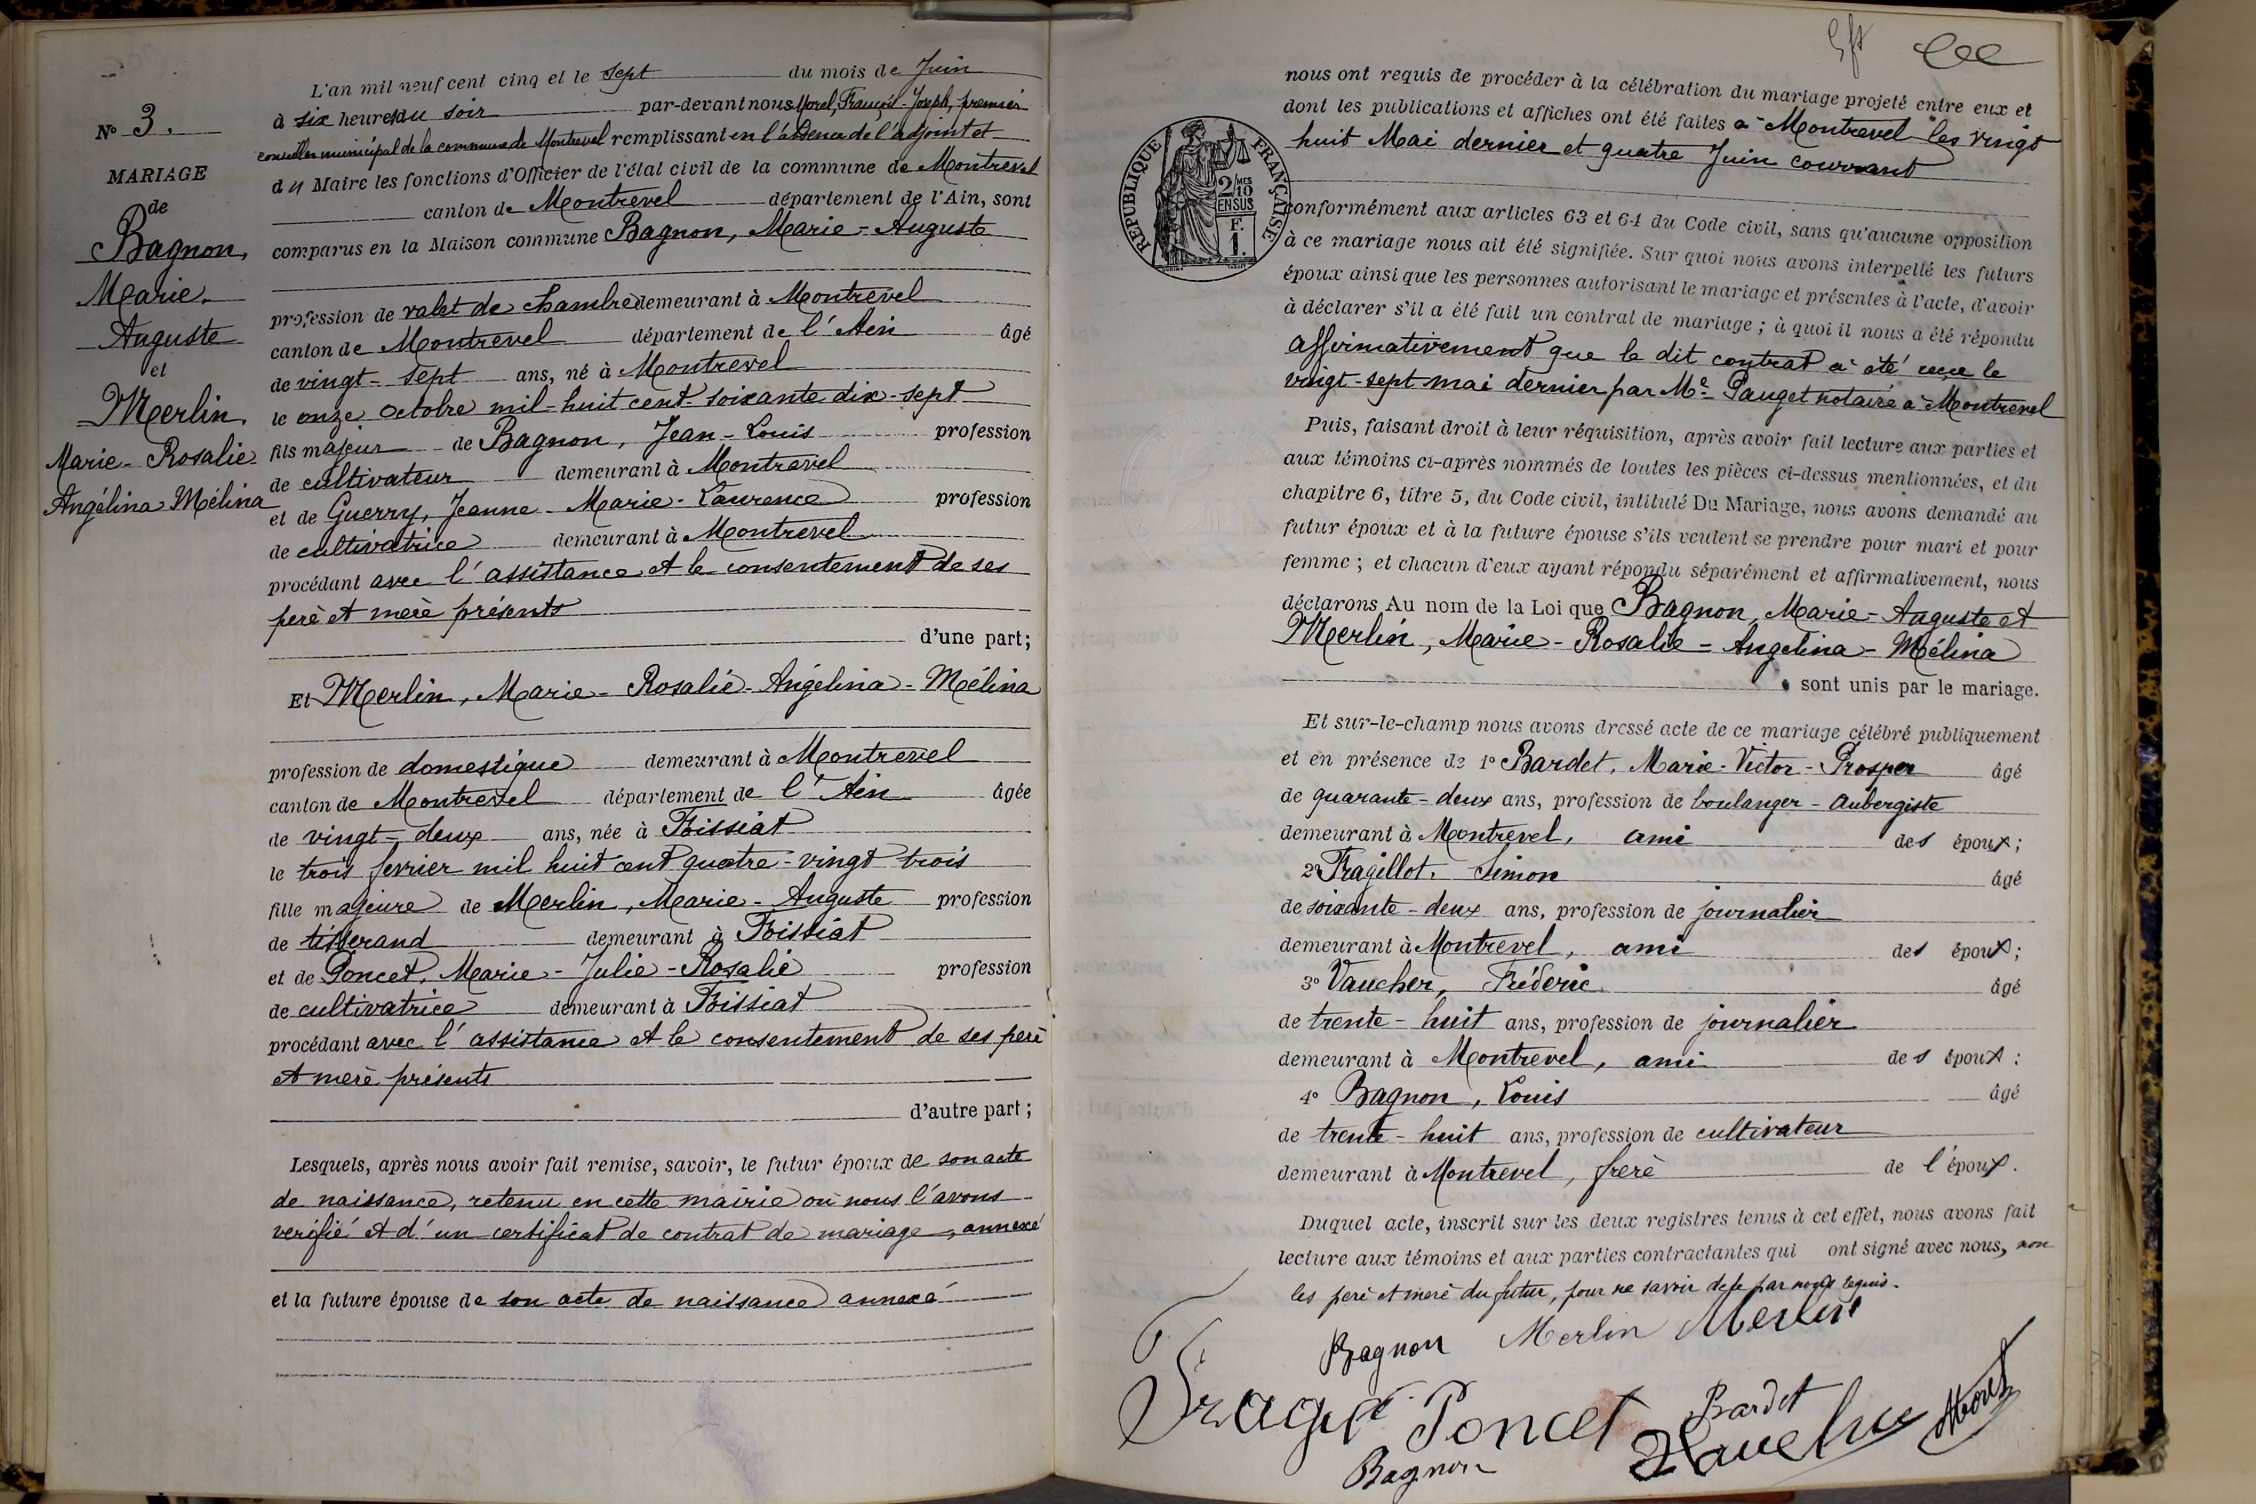 N° 3.
MARIAGE
de
Bagnon,
Marie-
Auguste
et
Merlin,
Marie-Rosalie-
Angélina-Mélina
L'an mil neuf cent cinq et le sept du mois de Juin
à six heures du soir par-devant nous Morel, François-Joseph, premier
conseiller municipal de la commune de Montrevel remplissant en l'absence de l'adjoint et
du Maire les fonctions d'Officier de l'état civil de la commune de Montrevel
canton de Montrevel département de l'Ain, sont
comparus en la Maison commune Bagnon, Marie-Auguste
profession de valet de chambre demeurant à Montrevel
canton de Montrevel département de l'Ain âgé
de vingt-sept ans, né à Montrevel
le onze octobre mil-huit cent soixante dix-sept
fils majeur de Bagnon, Jean-Louis profession
de cultivateur demeurant à Montrevel
et de Guerry, Jeanne-Marie-Laurence profession
de cultivatrice demeurant à Montrevel
procédant avec l'assistance et le consentement de ses
père et mère présents
d'une part;
Et Merlin, Marie-Rosalie-Angélina-Mélina
profession de domestique demeurant à Montrevel
canton de Montrevel département de l'Ain âgée
de vingt-deux ans, née à Foissiat
le trois fevrier mil huit cent quatre-vingt trois
fille majeure de Merlin, Marie-Auguste profession
de tisserand demeurant à Foissiat
et de Poncet, Marie-Julie-Rosalie profession
de cultivatrice demeurant à Foissiat
procédant avec l'assistance et le consentement de ses père
et mère présents
d'autre part;
Lesquels, après nous avoir fait remise, savoir, le futur époux de son acte
de naissance, retenu en cette mairie où nous l'avons
verifié et d'un certificat de contrat de mariage, annexé
et la future épouse de son acte de naissance annexé
nous ont requis de procéder à la célébration du mariage projeté entre eux et
dont les publications et affiches ont été faites à Montrevel les vingt
huit Mai dernier et quatre Juin courrant
REPUBLIQUE FRANÇAISE
2/10 MES
EN SUS
F.
1.
conformément aux articles 63 et 64 du Code civil, sans qu'aucune opposition
à ce mariage nous ait été signifiée. Sur quoi nous avons interpellé les futurs
époux ainsi que les personnes autorisant le mariage et présentes à l'acte, d'avoir
à déclarer s'il a été fait un contrat de mariage; à quoi il nous a été répondu
affirmativement que le dit contrat a été reçu le
vingt-sept mai dernier par Me Pauget notaire à Montrevel
Puis, faisant droit à leur réquisition, après avoir fait lecture aux parties et
aux témoins ci-après nommés de toutes les pièces ci-dessus mentionnées, et du
chapitre 6, titre 5, du Code civil, intitulé Du Mariage, nous avons demandé au
futur époux et à la future épouse s'ils veulent se prendre pour mari et pour
femme; et chacun d'eux ayant répondu séparément et affirmativement, nous
déclarons Au nom de la Loi que Bagnon, Marie-Auguste et
Merlin, Marie-Rosalie-Angelina-Mélina
sont unis par le mariage.
Et sur-le-champ nous avons dressé acte de ce mariage célébré publiquement
et en présence de 1° Bardet, Marie-Victor-Prosper âgé
de quarante-deux ans, profession de boulanger-aubergiste
demeurant à Montrevel, ami des époux;
2° Fragillot, Simon âgé
de soixante-deux ans, profession de journalier
demeurant à Montrevel, ami des époux;
3° Vaucher, Fréderic âgé
de trente-huit ans, profession de journalier
demeurant à Montrevel, ami des époux:
4° Bagnon, Louis âgé
de trente-huit ans, profession de cultivateur
demeurant à Montrevel, frère de l'époux.
Duquel acte, inscrit sur les deux registres tenus à cet effet, nous avons fait
lecture aux témoins et aux parties contractantes qui ont signé avec nous, non
les père et mère du futur, pour ne savoir de ce par nous requis.
Bagnon Merlin Merlin
Poncet Bardet Morel
Bagnon Vaucher